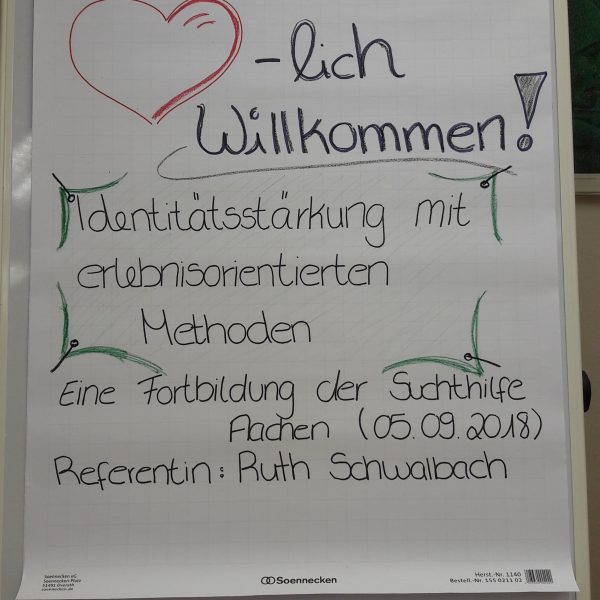 -lich
Willkommen!
Identitätsstärkung mit
erlebnisorientierten
Methoden
Eine Fortbildung der Suchthilfe
Aachen (05.09.2018)
Referentin: Ruth Schwalbach
Soennecken eG
Soennecken-Platz
51491 Overath
soennecken.de
Soennecken
Herst.-Nr. 1160
Bestell.-Nr. 155 0211 02